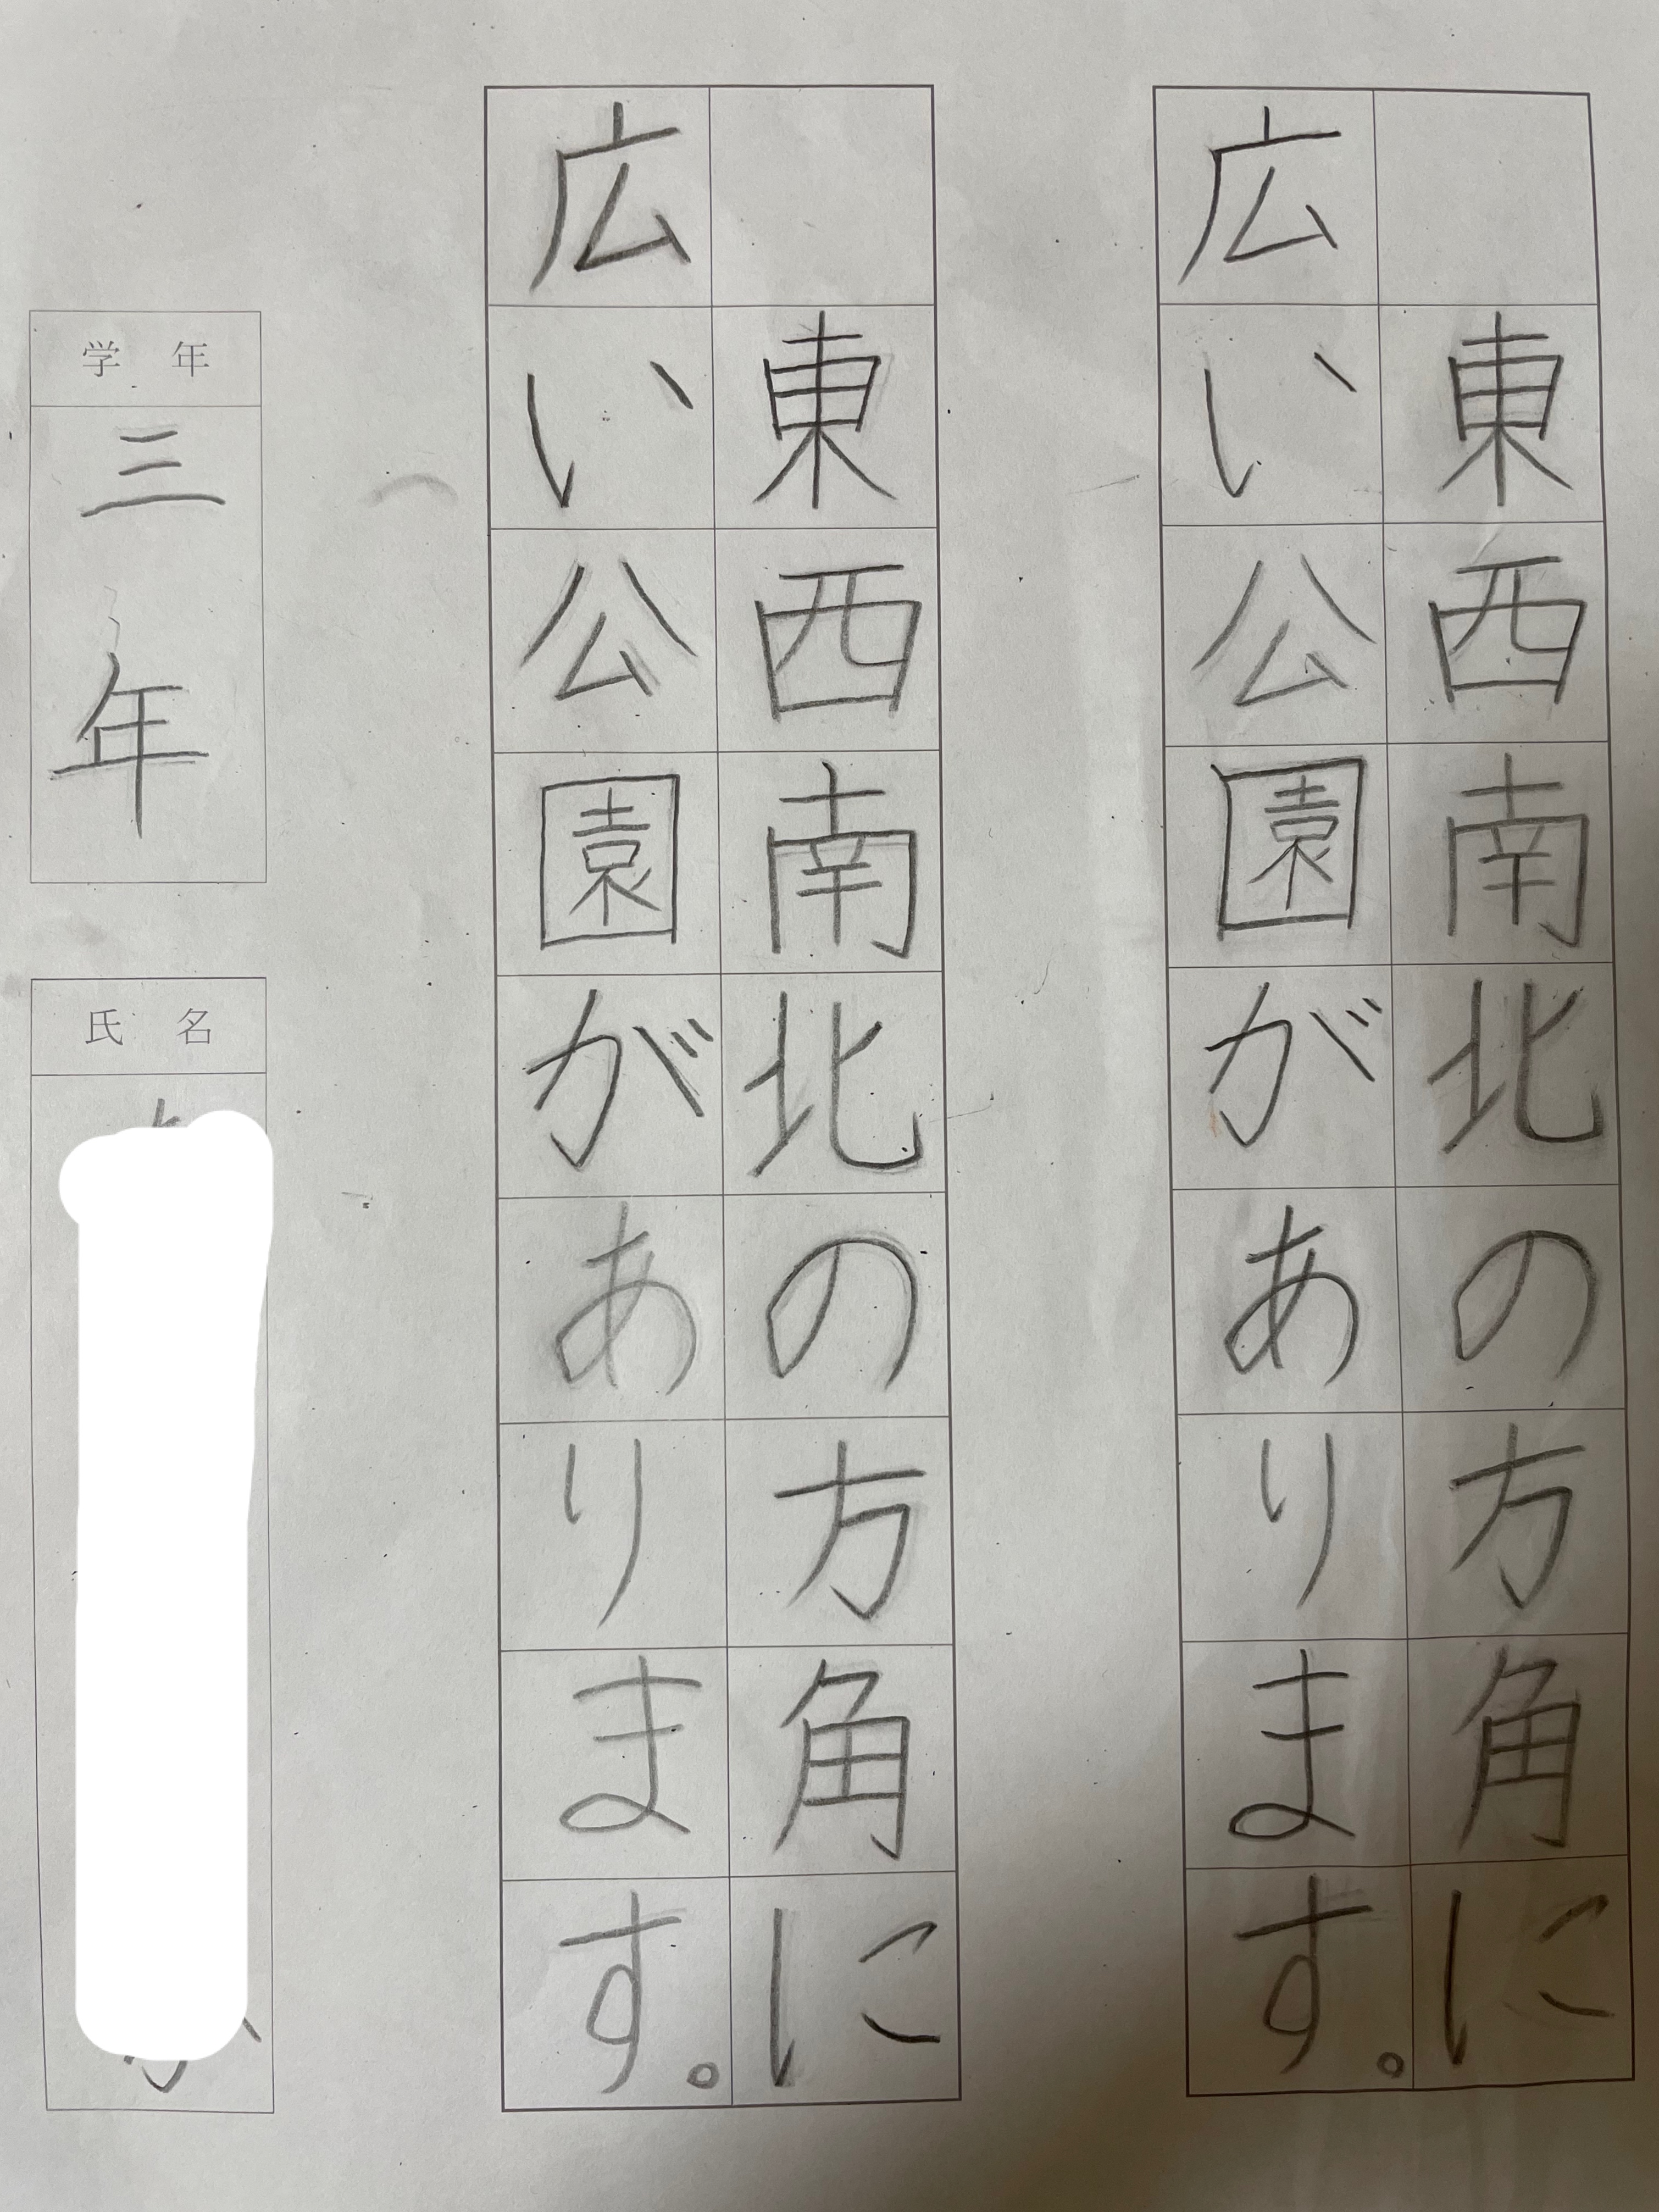 東西南北の方角に
広い公園があります。
東西南北の方角に
広い公園があります。
学年
三年
氏名